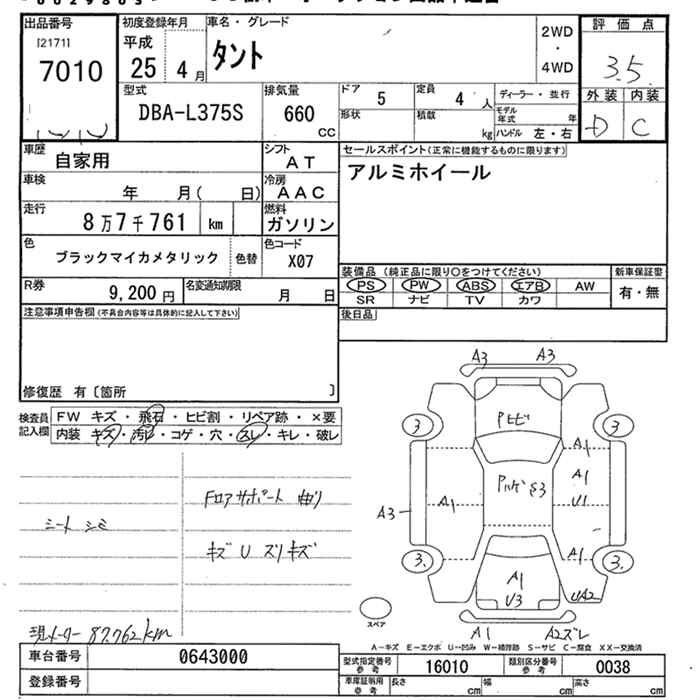 出品番号
[2171]
7010
初度登録年月
平成
25 4 月
車名・グレード
タント
2WD
・
4WD
評価点
3.5
外装 内装
D C
型式
DBA-L375S
排気量
660
CC
ドア
5
定員
4 人
ディーラー・並行
形状
積載
kg
モデル年式 年
ハンドル 左・右
車歴
自家用
シフト
AT
セールスポイント(正常に機能するものに限ります)
アルミホイール
車検
年 月( 日)
冷房
AAC
走行
8万7千761 km
燃料
ガソリン
色
ブラックマイカメタリック
色替
色コード
X07
装備品(純正品に限り○をつけてください)
新車保証書
PS PW ABS エアB AW
有・無
SR ナビ TV カワ
R券
9,200 円
名変通知期限
月 日
後日品
注意事項申告欄(不具合内容等は具体的に記入して下さい)
修復歴 有〔箇所 〕
検査員記入欄
FW キズ・飛石・ヒビ割・リペア跡・×要
内装 キズ・汚レ・コゲ・穴・スレ・キレ・破レ
A3 A3
3 3
Pヒビ
A1
A1
A1 U1
A3
A1
3. 3.
A1
U3
UA2
A1 A2ズレ
スペア
Fロアサポート 曲り
シート シミ
キズ U スリキズ
現メーター 87,762km
A-キズ E-エクボ U-凹み W-補修跡 S-サビ C-腐食 XX-交換済
車台番号 0643000
型式指定番号 参考 16010
類別区分番号 参考 0038
登録番号
車庫証明用 参考 長さ cm 幅 cm 高さ cm